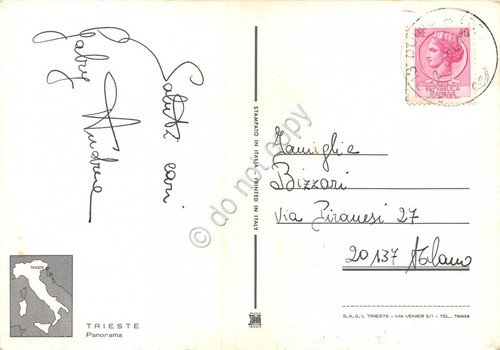 Saluti cari
Gabry
Andrea
TRIESTE
TRIESTE
Panorama
STAMPATO IN ITALIA - PRINTED IN ITALY
TRIESTE
LIRE 40
REPUBBLICA
ITALIANA
Famiglia
Bizzari
Via Piranesi 27
20137 Milano
S.A.G.I. TRIESTE - VIA VENIER 5/1 - TEL. 790868
do not copy